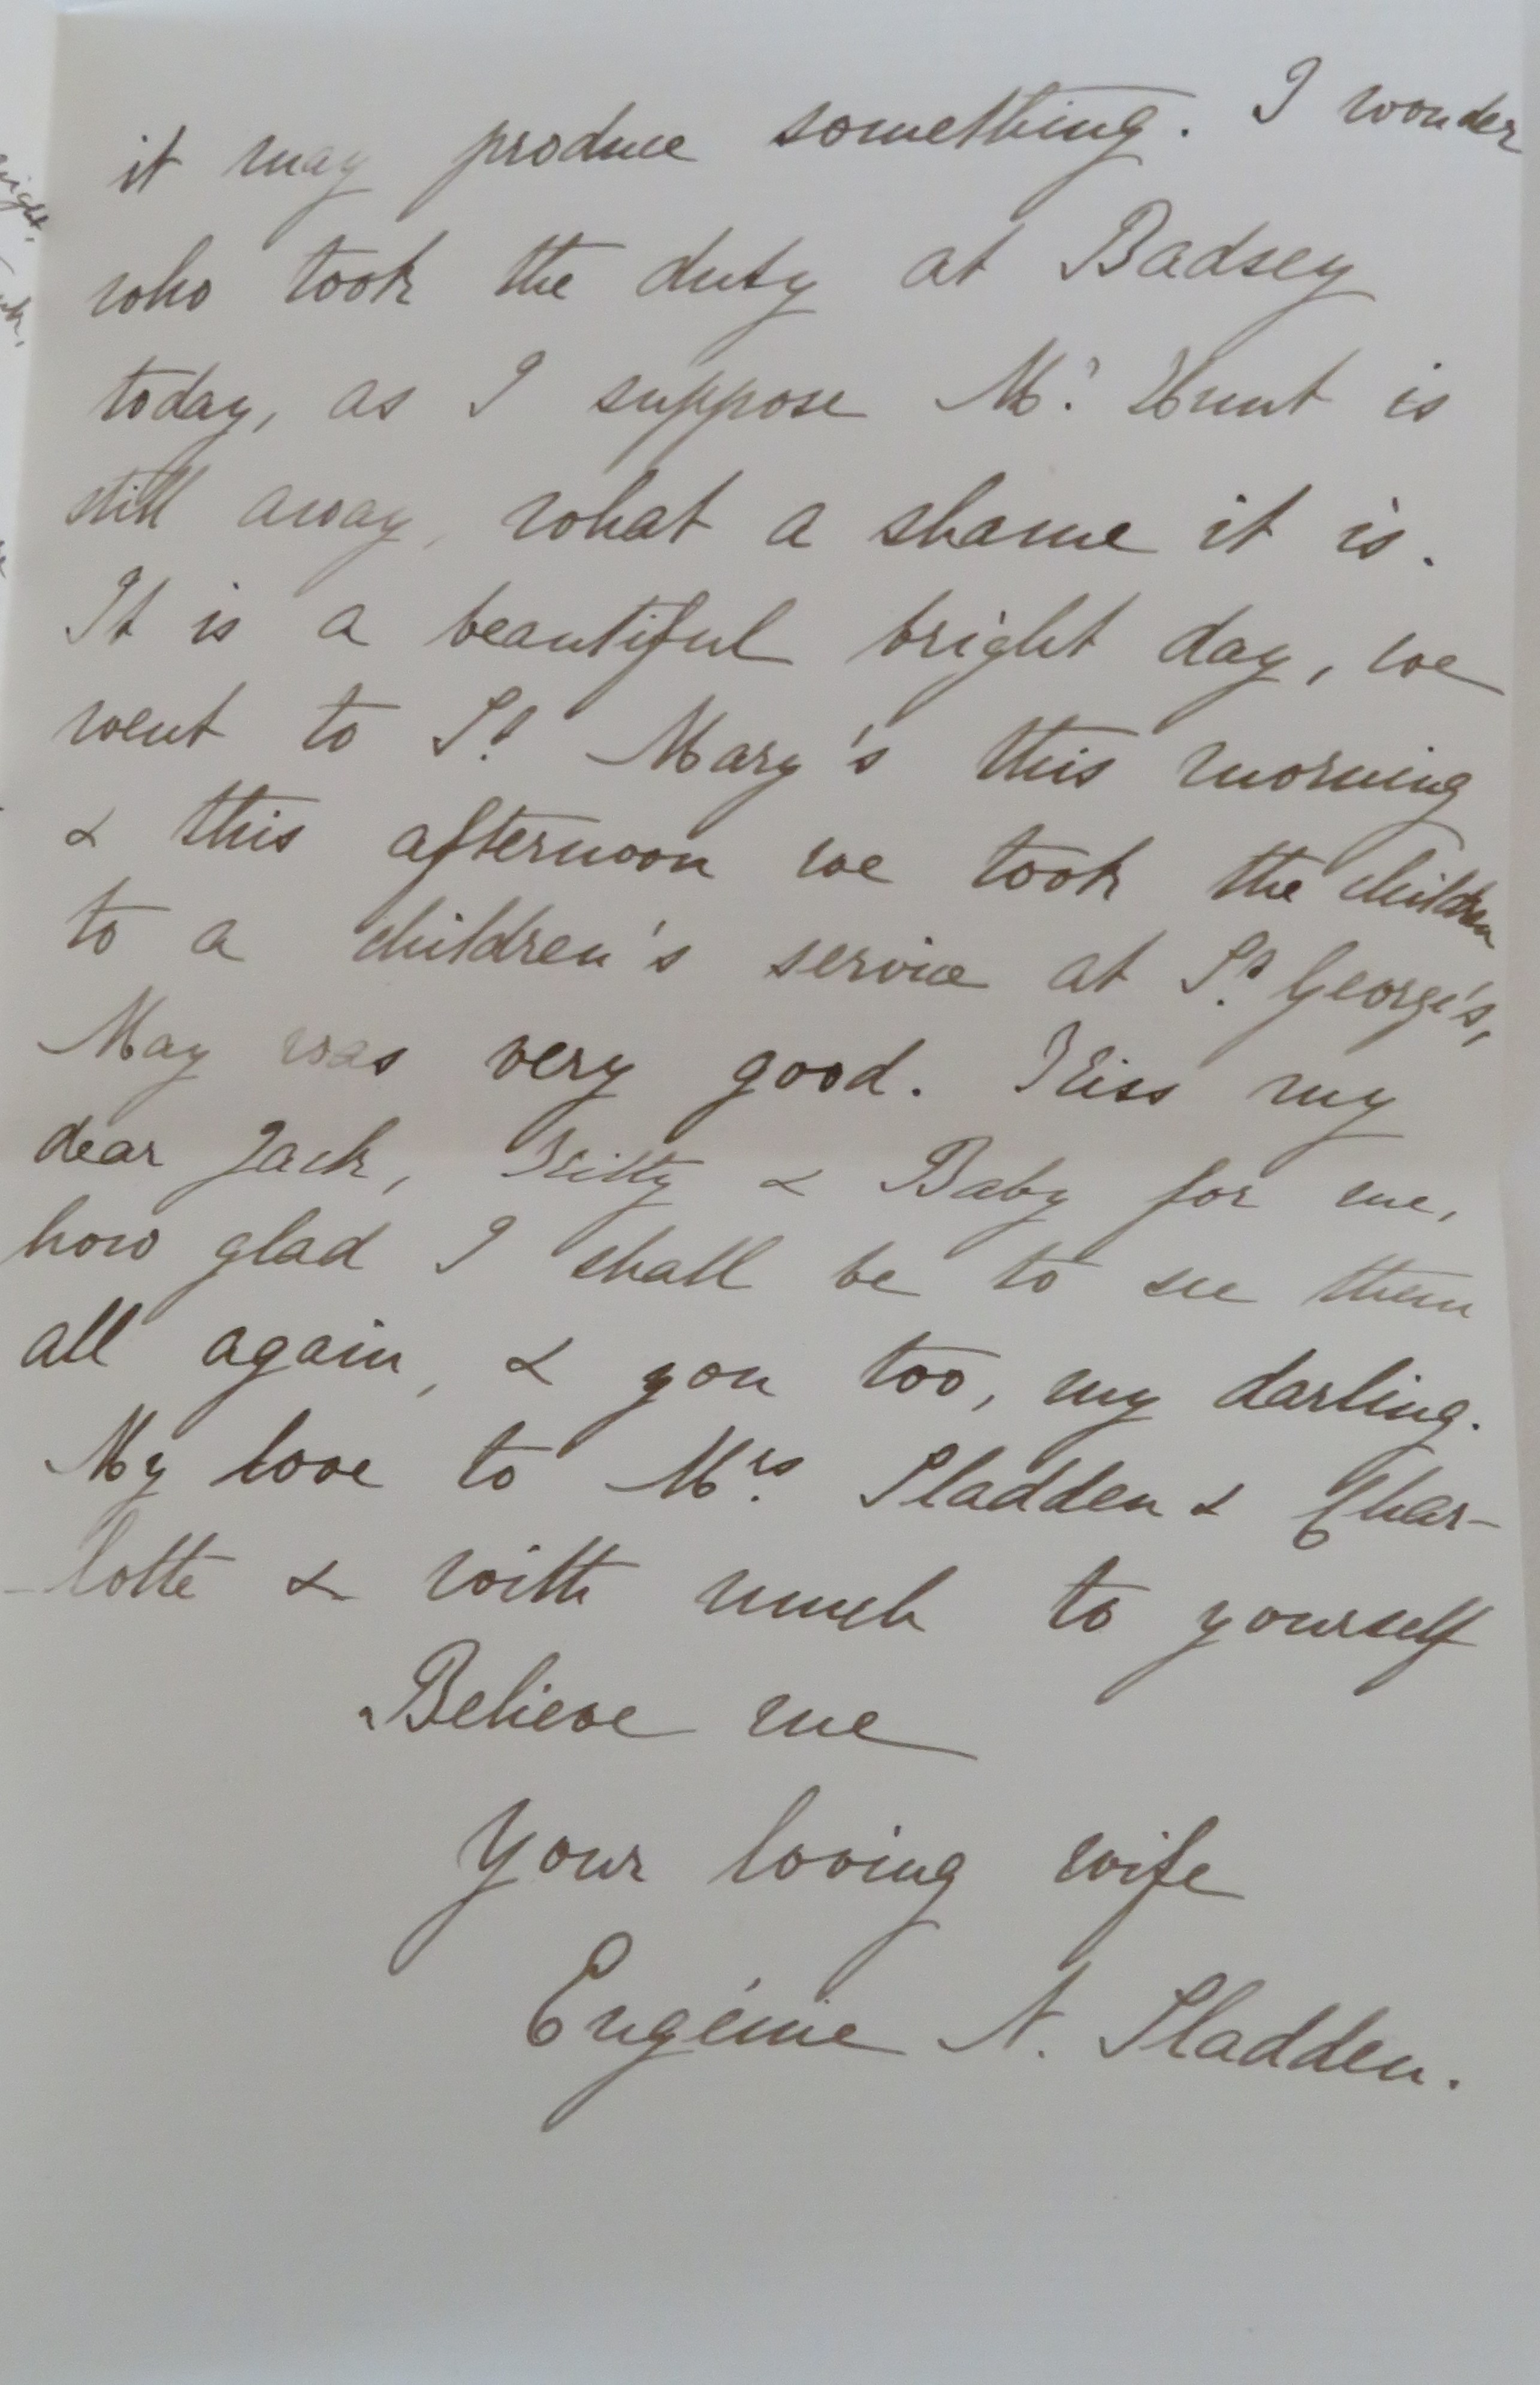 it may produce something. I wonder
who took the duty at Badsey
today, as I suppose Mr. Hunt is
still away, what a shame it is.
It is a beautiful bright day, we
went to St. Mary's this morning
& this afternoon we took the children
to a children's service at St. George's,
May was very good. Kiss my
dear Jack, Kitty & Baby for me,
how glad I shall be to see them
all again, & you too, my darling.
My love to Mrs. Sladden & Char-
-lotte & with much to yourself
Believe me
Your loving wife
Eugénie N. Sladden.